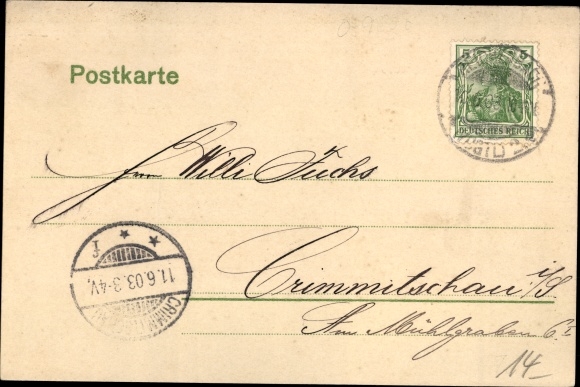 Postkarte
5 5
DEUTSCHES REICH
Herrn Willi Fuchs
Crimmitschau i/S.
Am Mühlgraben 6 I
f
* *
11.6.03.3-4V.
14-